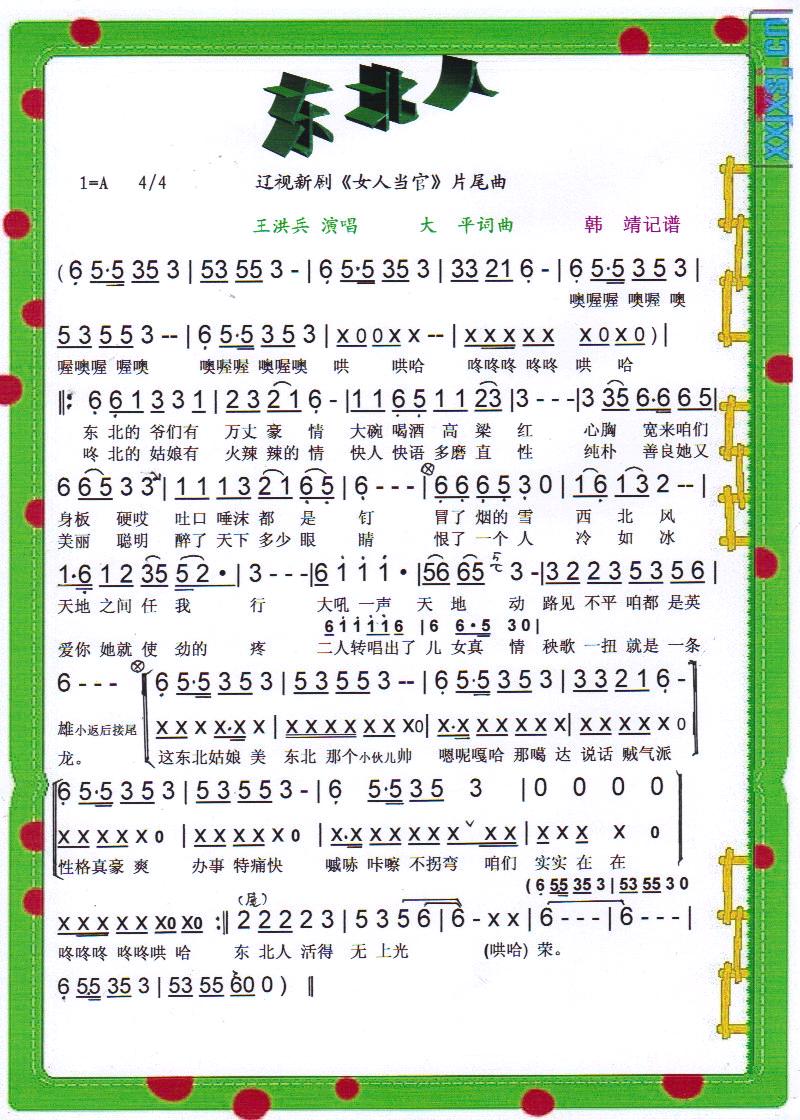 东北人
xxjxsj.cn
1=A 4/4 辽视新剧《女人当官》片尾曲
王洪兵 演唱 大 平词曲 韩 靖记谱
( 6 5·5 35 3 | 53 55 3 - | 6 5·5 35 3 | 33 21 6 - | 6 5·5 3 5 3 |
噢喔喔 噢喔 噢
5 3 5 5 3 -- | 6 5·5 3 5 3 | X 0 0 X X -- | X X X X X X0 X0 ) |
喔噢喔 喔噢 噢喔喔 噢喔噢 哄 哄哈 咚咚咚 咚咚 哄 哈
‖: 6 6 1 3 3 1 | 2 3 2 1 6 - | 1 1 6 5 1 1 23 | 3 - - - | 3 35 6·6 6 5 |
东 北的 爷们有 万丈 豪 情 大碗 喝酒 高 梁 红 心胸 宽来咱们
咚 北的 姑娘有 火辣 辣的 情 快人 快语 多磨 直 性 纯朴 善良她又
6 6 5 3 3 | 1 1 1 3 2 1 6 5 | 6 - - - | 6 6 6 5 3 0 | 1 6 1 3 2 -- |
身板 硬哎 吐口 唾沫 都 是 钉 冒了 烟的 雪 西 北 风
美丽 聪明 醉了 天下 多少 眼 睛 恨了 一个 人 冷 如 冰
1·6 1 2 35 5 2 · | 3 - - - | 6 1 1 1 · | 56 65 3 - | 3 2 2 3 5 3 5 6 |
天地 之间 任 我 行 大吼 一声 天 地 动 路见 不平 咱都 是英
6 1 1 1 1 6 | 6 6·5 3 0 |
爱你 她就 使 劲的 疼 二人转唱出了 儿 女真 情 秧歌 一扭 就是 一条
6 - - - 6 5·5 3 5 3 | 5 3 5 5 3 -- | 6 5·5 3 5 3 | 3 3 2 2 1 6 -
雄小返后接尾 X X X X·X X | X X X X X X X0 | X·X X X X X X | X X X X X 0
龙。 这东北姑娘 美 东北 那个小伙儿帅 嗯呢嘎哈 那噶 达 说话 贼气派
6 5·5 3 5 3 | 5 3 5 5 3 - | 6 5·5 3 5 3 | 0 0 0 0
X X X X X 0 | X X X X X 0 | X·X X X X X X X X | X X X X 0
性格真豪 爽 办事 特痛快 喊哧 咔嚓 不拐弯 咱们 实实 在 在
( 6 55 35 3 | 53 55 3 0
(尾)
X X X X X X0 X0 :‖ 2 2 2 2 3 | 5 3 5 6 | 6 - X X | 6 - - - | 6 - - - |
咚咚咚 咚咚哄 哈 东 北人 活得 无 上光 (哄哈) 荣。
6 55 35 3 | 53 55 600 ) ‖